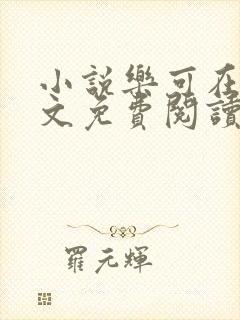 小説樂可在
文免費閱讀
羅元輝